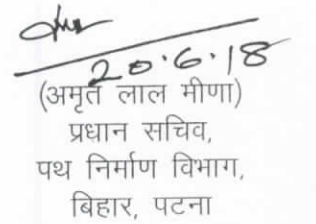 20.6.18
(अमृत लाल मीणा)
प्रधान सचिव,
पथ निर्माण विभाग,
बिहार, पटना